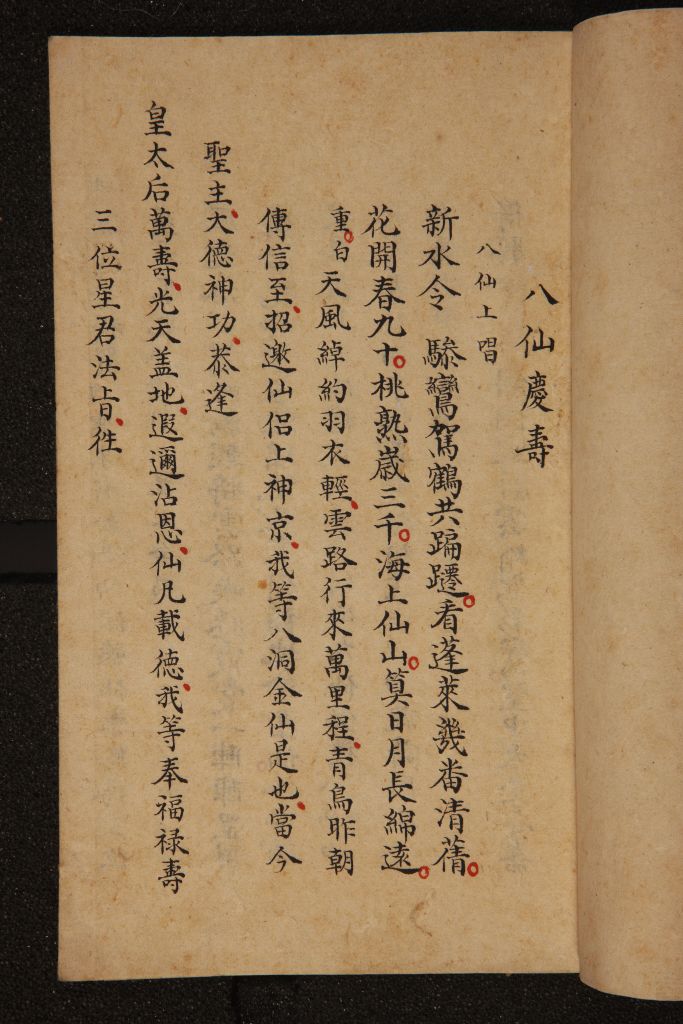 八仙慶壽
八仙上唱
新水令 驂鸞駕鶴共蹁躚。看蓬萊幾番清蒨。
花開春九十。桃熟歲三千。海上仙山。算日月長綿遠。
重。白 天風綽約羽衣輕、雲路行來萬里程、青鳥昨朝
傳信至、招邀仙侶上神京、我等八洞金仙是也、當今
聖主、大德神功、恭逢
皇太后萬壽、光天盖地、遐邇沾恩、仙凡載德、我等奉福禄壽
三位星君法旨、徃